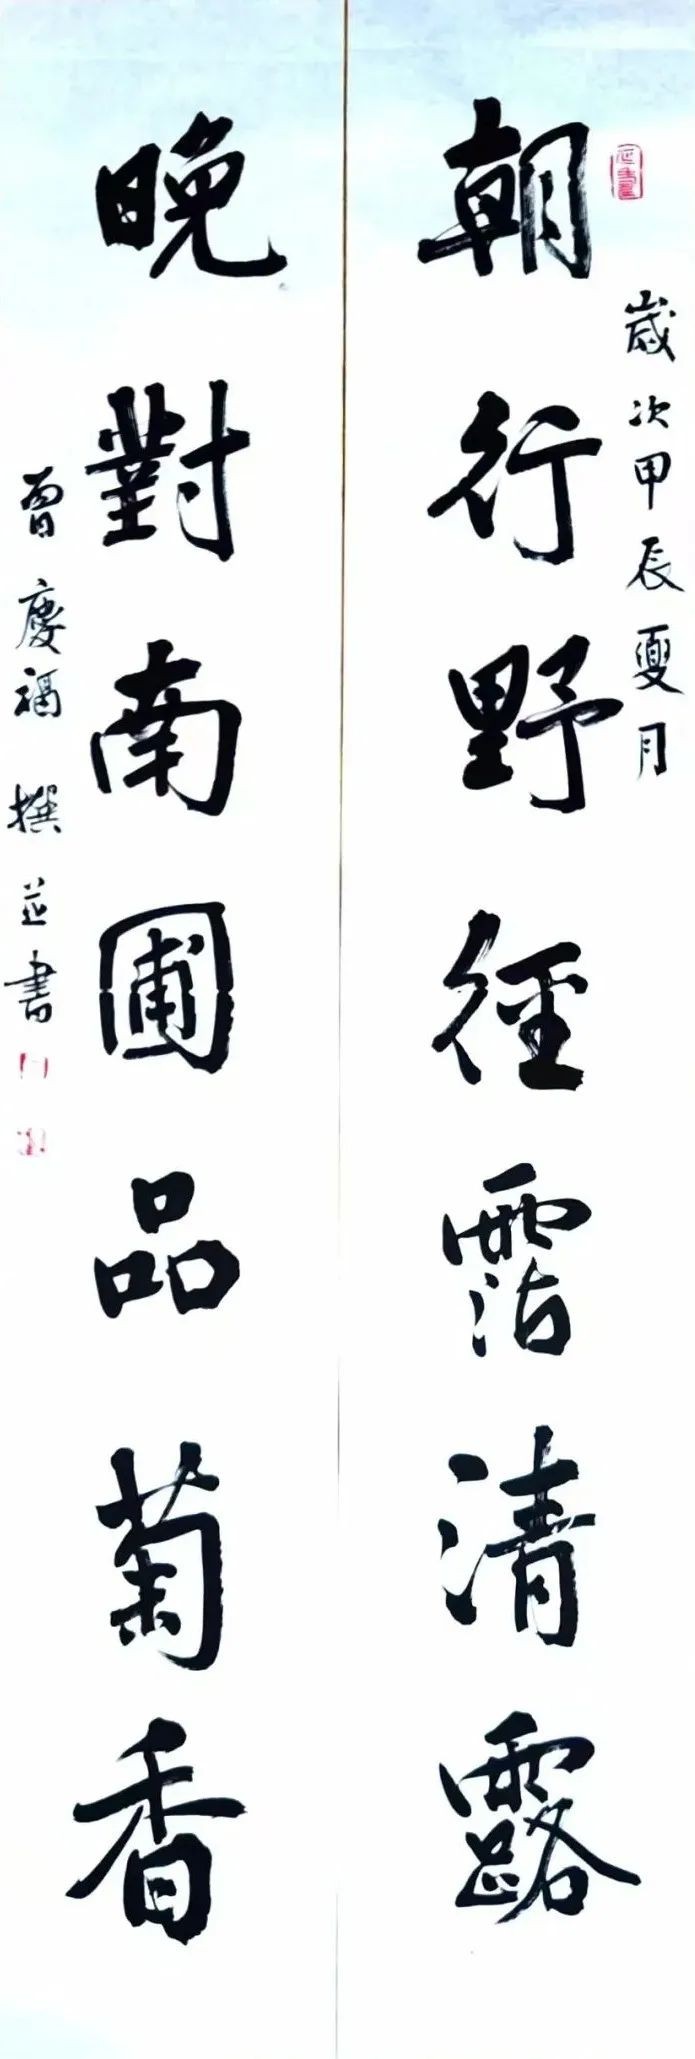 歲次甲辰夏月
朝行野徑霑清露
晚對南圃品菊香
曾慶福撰並書